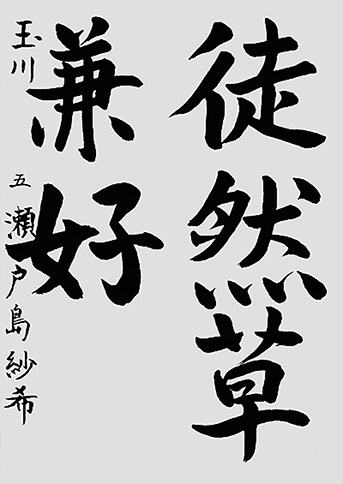 徒然草
兼好
玉川 五 瀬戸島紗希